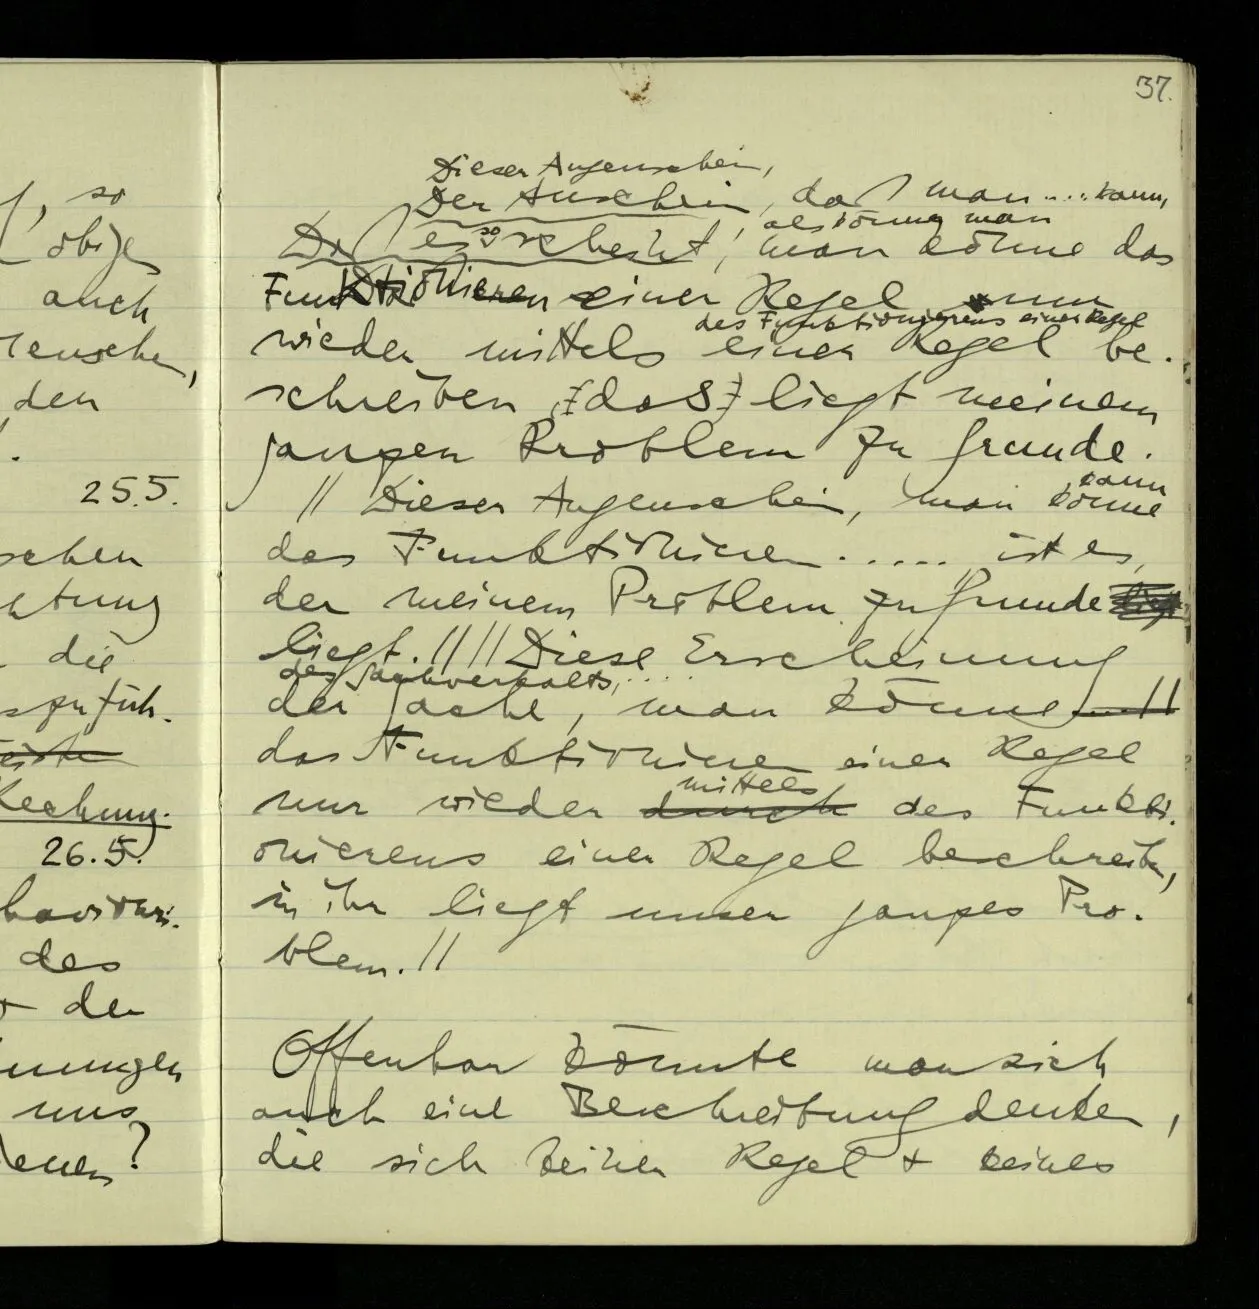 37.
Dieser Augenschein,
Der Anschein, daß man .... kann,
als könne man
Daß es so scheint, man könne das
Funktionieren einer Regel nur
des Funktionierens einer Regel
wieder mittels einer Regel be-
schreiben, das liegt meinem
ganzen Problem zu Grunde.
kann
// Dieser Augenschein, man könne
das Funktionieren ..... ist es,
der meinem Problem zu Grunde liegt
liegt. // // Diese Erscheinung
des Sachverhalts, ....
der Sache, man könne — //
das Funktionieren einer Regel
mittels
nur wieder durch des Funkti-
onierens einer Regel beschreiben,
in ihr liegt unser ganzes Pro-
blem. //
Offenbar könnte man sich
auch eine Beschreibung denken,
die sich keiner Regel + keines
, so
obige
auch
Menschen,
den
.
25.5.
schen
die
szufüh-
Rechnung.
26.5.
des
den
uns
?